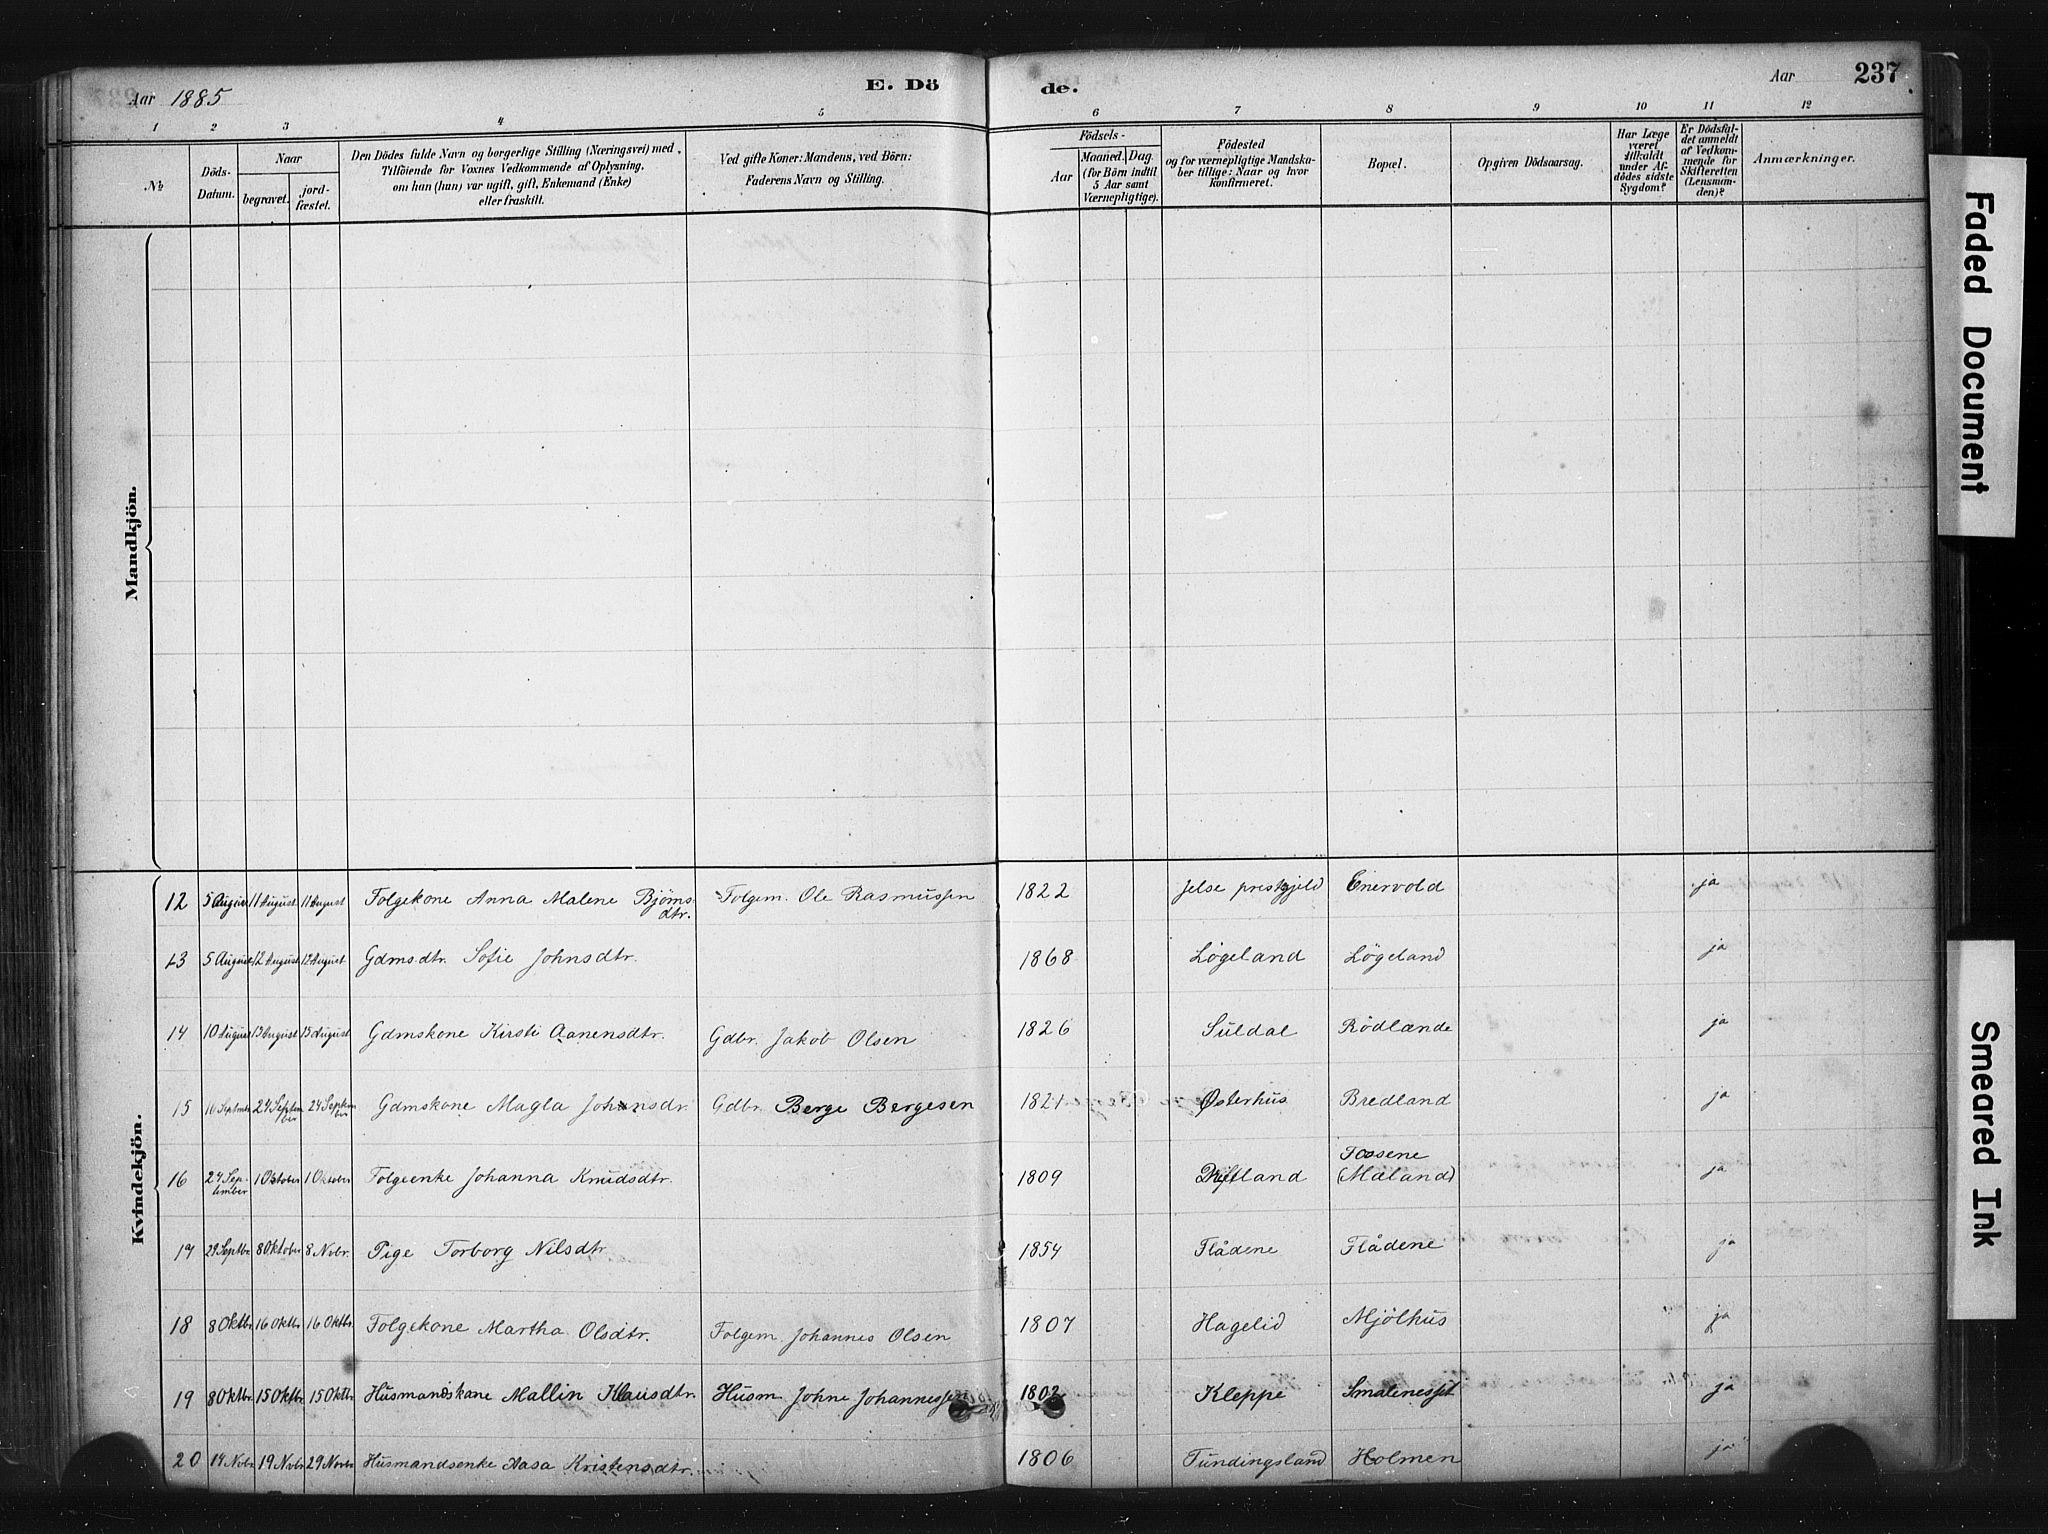 Aar 1885
E. Dö
de.
Aar
237
1 2 3 4 5 6 7 8 9 10 11 12
№
Döds-
Datum.
Naar
begravet.
jord-
fæstet.
Den Dödes fulde Navn og borgerlige Stilling (Næringsvei) med
Tilföiende for Voxnes Vedkommende af Oplysning,
om han (hun) var ugift, gift, Enkemand (Enke)
eller fraskilt.
Ved gifte Koner: Mandens, ved Börn:
Faderens Navn og Stilling.
Födsels-
Aar
Maaned. Dag.
(for Börn indtil
5 Aar samt
Værnepligtige).
Födested
og for værnepligtige Mandska-
ber tillige: Naar og hvor
konfirmeret.
Bopæl.
Opgiven Dödsaarsag.
Har Læge
været
tilkaldt
under Af-
dödes sidste
Sygdom?
Er Dödsfal-
det anmeldt
af Vedkom-
mende for
Skifteretten
(Lensman-
den)?
Anmærkninger.
Mandkjön.
Kvindekjön.
12 5 August 11 August 11 August Folgekone Anna Malene Bjørns- Folgem. Ole Rasmussen 1822 Jelse prestgjeld Enervold ja
dtr.
13 5 August 12 August 12 August Gdms.dtr. Sofie Johnsdtr. 1868 Løgeland Løgeland ja
14 10 August 13 August 13 August Gdmskone Kirsti Aanensdtr. Gdbr. Jakob Olsen 1826 Suldal Rødlande ja
15 16 Septmber 24 Septem 24 Septem Gdmskone Magla Johnsdr. Gdbr. Berge Bergesen 1821 Østerhus Bredland ja
ber ber
Fossene
16 24 Sep- 1 Oktober 1 Oktober Folgeenke Johanna Knudsdtr. 1809 (Maland) ja
tember
17 29 Septbr. 8 Oktober 8 Novbr. Pige Torborg Nilsdtr 1854 Flådene Flådene ja
18 8 Oktbr. 16 Oktbr. 16 Oktbr. Folgekone Martha Olsdtr. Folgem. Johannes Olsen 1807 Hagelid Mjølhus ja
19 8 Oktbr. 15 Oktbr. 15 Oktbr. Husmandskane Mallin Klausdtr. Husm. Johne Johannesse 1802 Kleppe Smalenesset ja
20 14 Novbr 19 Novbr 29 Novbr Husmandsenke Aasa Kristensdtr. 1806 Tundingsland Holmen ja
Faded Document
Smeared Ink